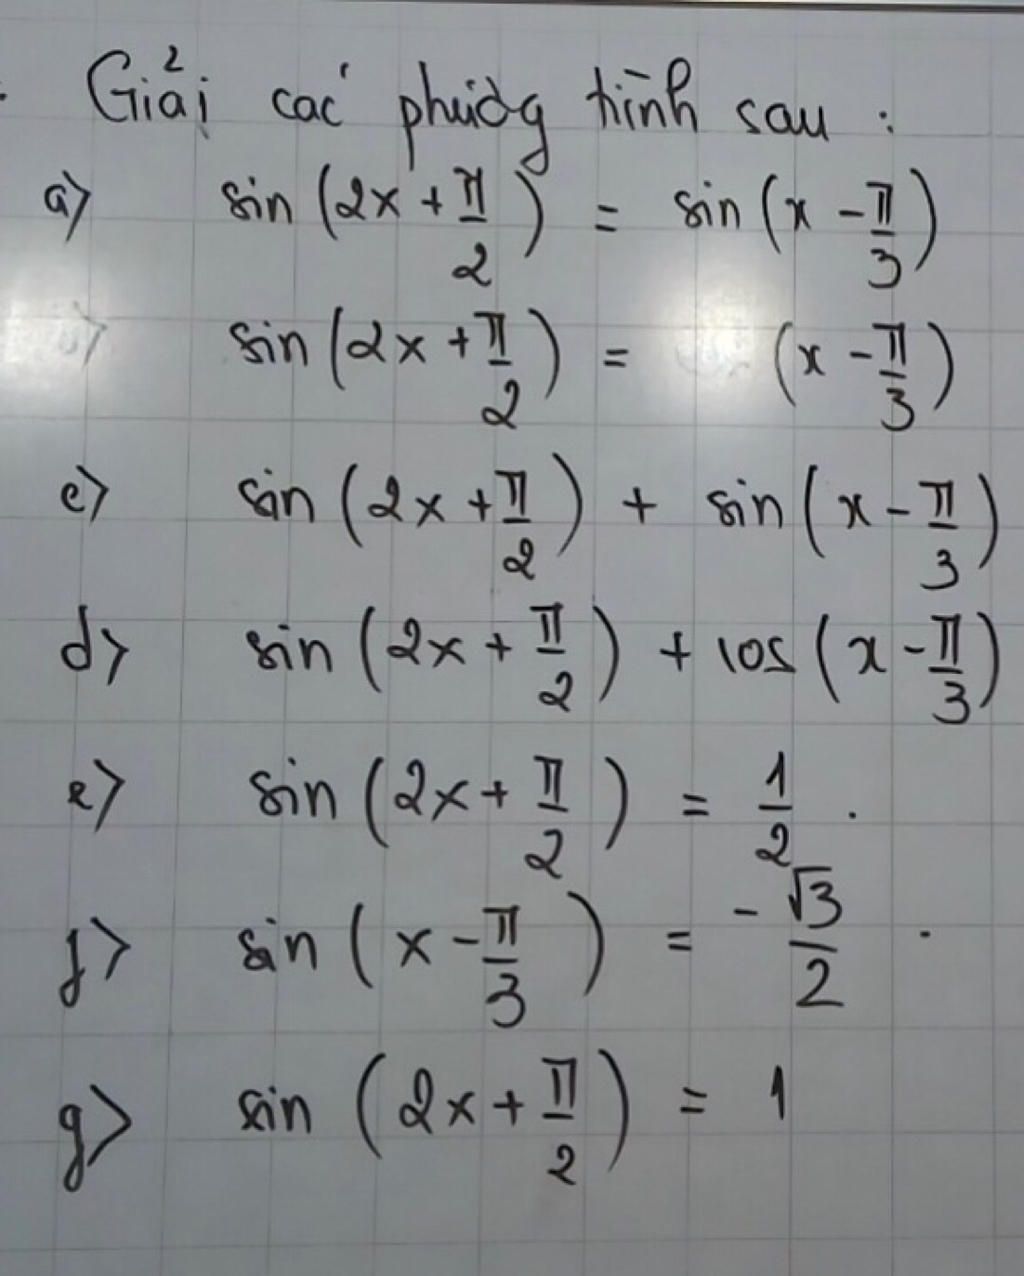 Giải các phương trình sau :
a) sin (2x + π/2) = sin (x - π/3)
sin (2x + π/2) = (x - π/3)
c) sin (2x + π/2) + sin (x - π/3)
d) sin (2x + π/2) + cos (x - π/3)
e) sin (2x + π/2) = 1/2 .
f) sin (x - π/3) = -√3/2 .
g) sin (2x + π/2) = 1